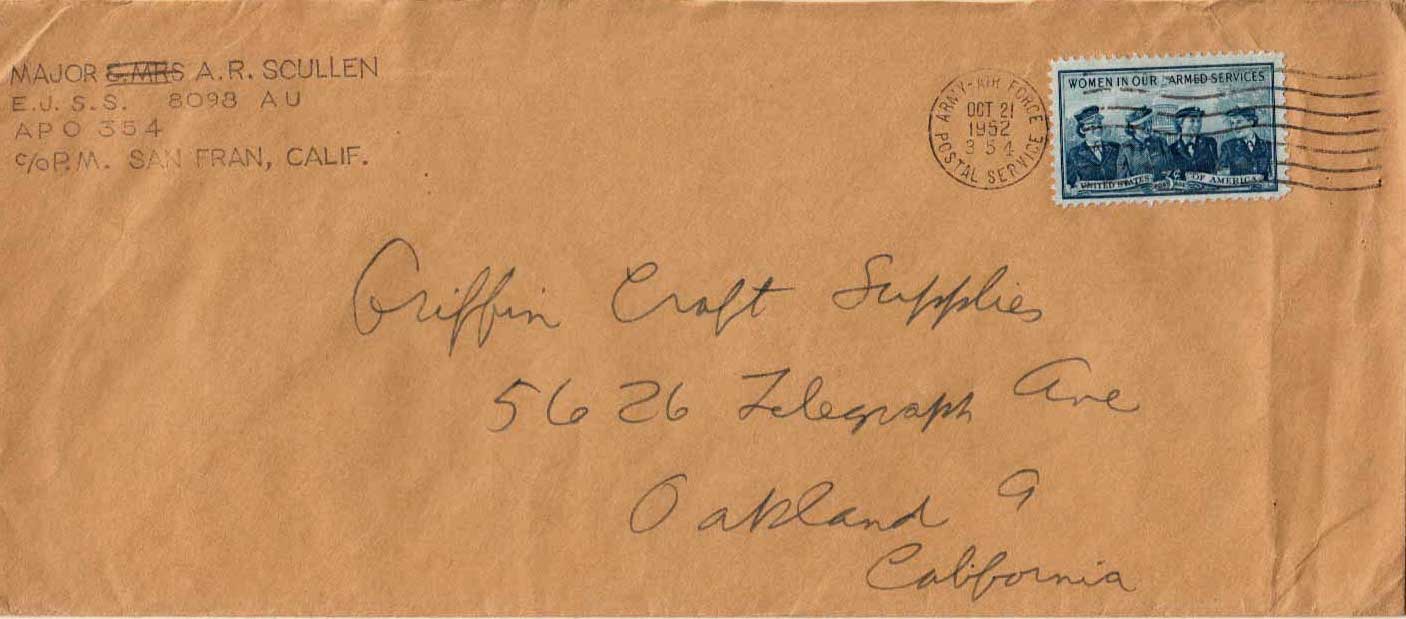 MAJOR & MRS A.R. SCULLEN
E.J.S.S. 8098 AU
APO 354
c/o P.M. SAN FRAN, CALIF.
ARMY-AIR FORCE
OCT 21
1952
354
POSTAL SERVICE
WOMEN IN OUR ARMED SERVICES
UNITED STATES 3¢ OF AMERICA
Griffin Craft Supplies
5626 Telegraph Ave
Oakland 9
California